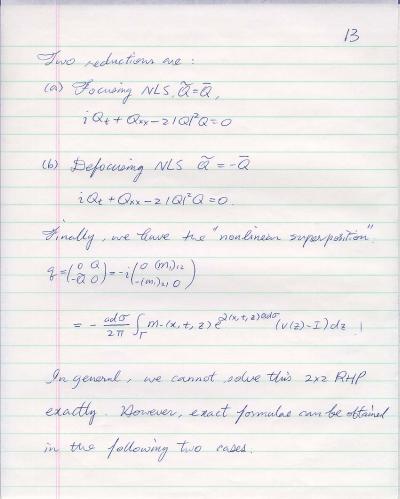 13
Two reductions are:
(a) Focusing NLS, Q̃ = Q̄,
iQt + Qxx - 2|Q|²Q = 0
(b) Defocusing NLS Q̃ = -Q̄
iQt + Qxx - 2|Q|²Q = 0.
Finally, we have the "nonlinear superposition".
q = (0 Q -Q̃ 0) = -i(0 (m₁)₁₂ -(m₁)₂₁ 0)
= - adσ/2π ∫Γ m-(x,t,z) e^(x,t,z)adσ (v(z)-I)dz
In general, we cannot solve this 2x2 RHP
exactly. However, exact formulae can be obtained
in the following two cases.